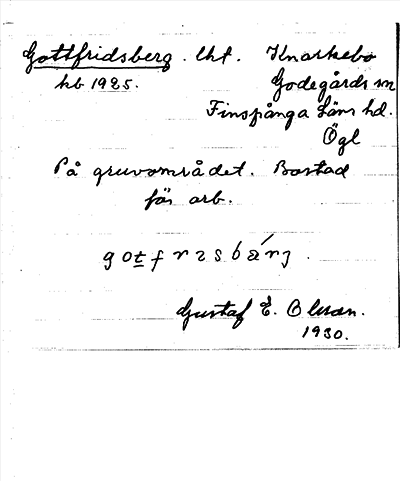 Gottfridsberg. lht. Knarkebo
kb 1925. Godegårds sn
Finspånga Läns hd.
Ögl
På gruvområdet. Bostad
för arb.
gotfrɪsbárj.
Gustaf E. Olsson.
1930.